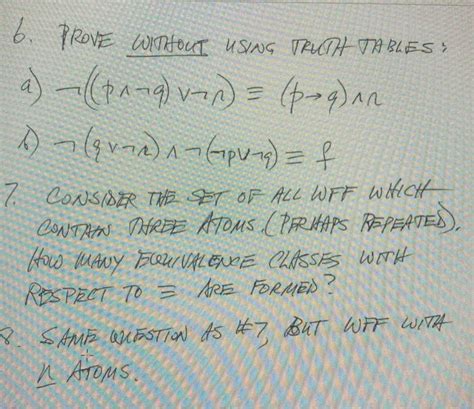 6. PROVE WITHOUT USING TRUTH TABLES:
a) ¬((p∧¬q)∨¬r) ≡ (p→q)∧r
b) ¬(q∨¬r)∧¬(¬p∨¬q) ≡ f
7. CONSIDER THE SET OF ALL WFF WHICH
CONTAIN THREE ATOMS. (PERHAPS REPEATED).
HOW MANY EQUIVALENCE CLASSES WITH
RESPECT TO ≡ ARE FORMED?
8. SAME QUESTION AS #7, BUT WFF WITH
n ATOMS.